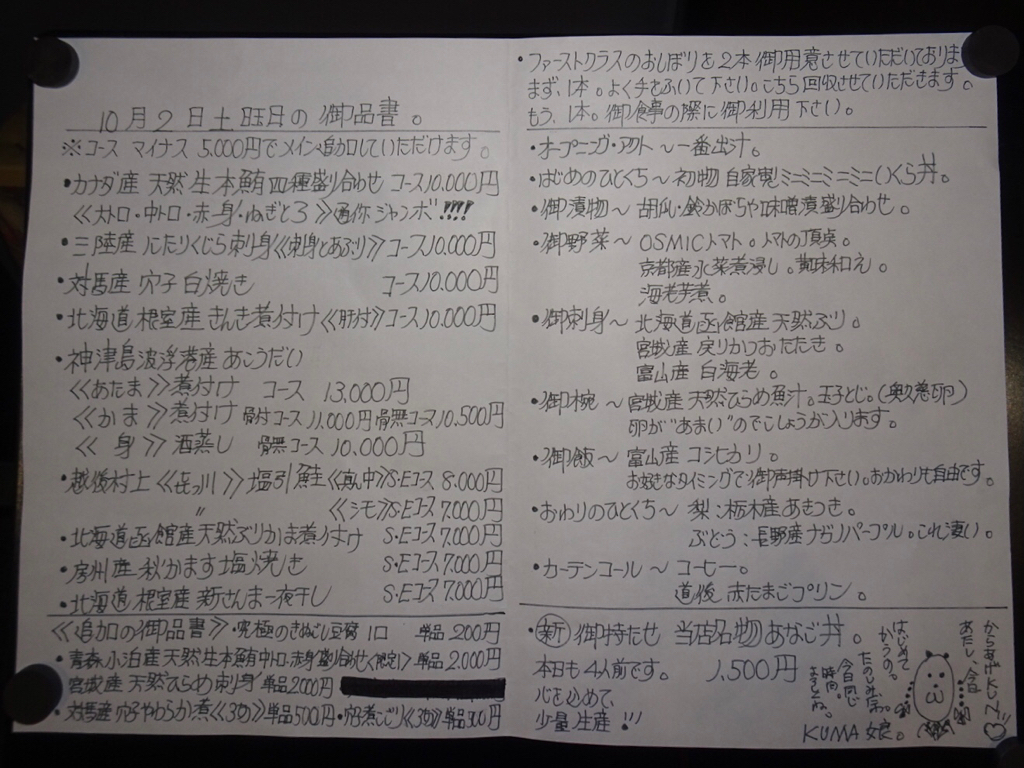 10月2日土曜日の御品書。
※コース マイナス 5.000円でメイン追加していただけます。
・カナダ産 天然生本鮪四種盛り合わせ コース10.000円
《大トロ・中トロ・赤身・ねぎとろ》通称ジャンボ!!!!
・三陸産 にたりくじら刺身《刺身とあぶり》コース10.000円
・対馬産 穴子 白焼き コース10.000円
・北海道根室産きんき煮付け《肝付》コース10.000円
・神津島波浮港産 あこうだい
《あたま》煮付け コース 13.000円
《かま》煮付け 骨付コース11.000円 骨無コース10.500円
《身》酒蒸し 骨無コース 10.000円
・越後村上《㐂っ川》塩引鮭《真ん中》S・Eコース 8.000円
〃 《シモ》S・Eコース 7.000円
・北海道函館産天然ぶりかま煮付け S・Eコース 7.000円
・房州産 秋かます塩焼き S・Eコース 7.000円
・北海道根室産 新さんま一夜干し S・Eコース 7.000円
《追加の御品書》・究極のきぬごし豆腐 1口 単品 200円
・青森小泊産天然生本鮪中トロ・赤身盛り合わせ《限定1》単品 2.000円
・宮城産 天然ひらめ刺身 単品 2.000円
・対馬産 穴子やわらか煮《3切》単品500円・穴子煮こごり《3切》単品 300円
・ファーストクラスのおしぼりを2本御用意させていただいておりま
まず、1本。よく手をふいて下さい。こちら回収させていただきます。
もう、1本。御食事の際に御利用下さい。
・オープニング・アクト〜一番出汁。
・はじめのひとくち〜初物 自家製ミニミニミニミニいくら丼。
・御漬物〜胡瓜・鈴かぼちゃ味噌漬盛り合わせ。
・御野菜〜OSMICトマト。トマトの頂点。
京都産水菜煮浸し。黄味和え。
海老芋煮。
・御刺身〜北海道函館産天然ぶり。
宮城産 戻りかつおたたき。
富山産 白海老。
・御椀〜宮城産 天然ひらめ魚汁。玉子とじ。(奥久慈卵)
卵が"あまい"のでこしょうが入ります。
・御飯〜富山産コシヒカリ。
お好きなタイミングで御声掛け下さい。おかわりも自由です。
・おわりのひとくち〜梨:栃木産あきづき。
ぶどう:長野産ナガノパープル。これ凄い。
・カーテンコール〜コーヒー。
道後 赤たまごプリン。
・新 御持たせ 当店名物あなご丼。
本日も4人前です。 1,500円
心を込めて、
少量生産!!!
KUMA娘。